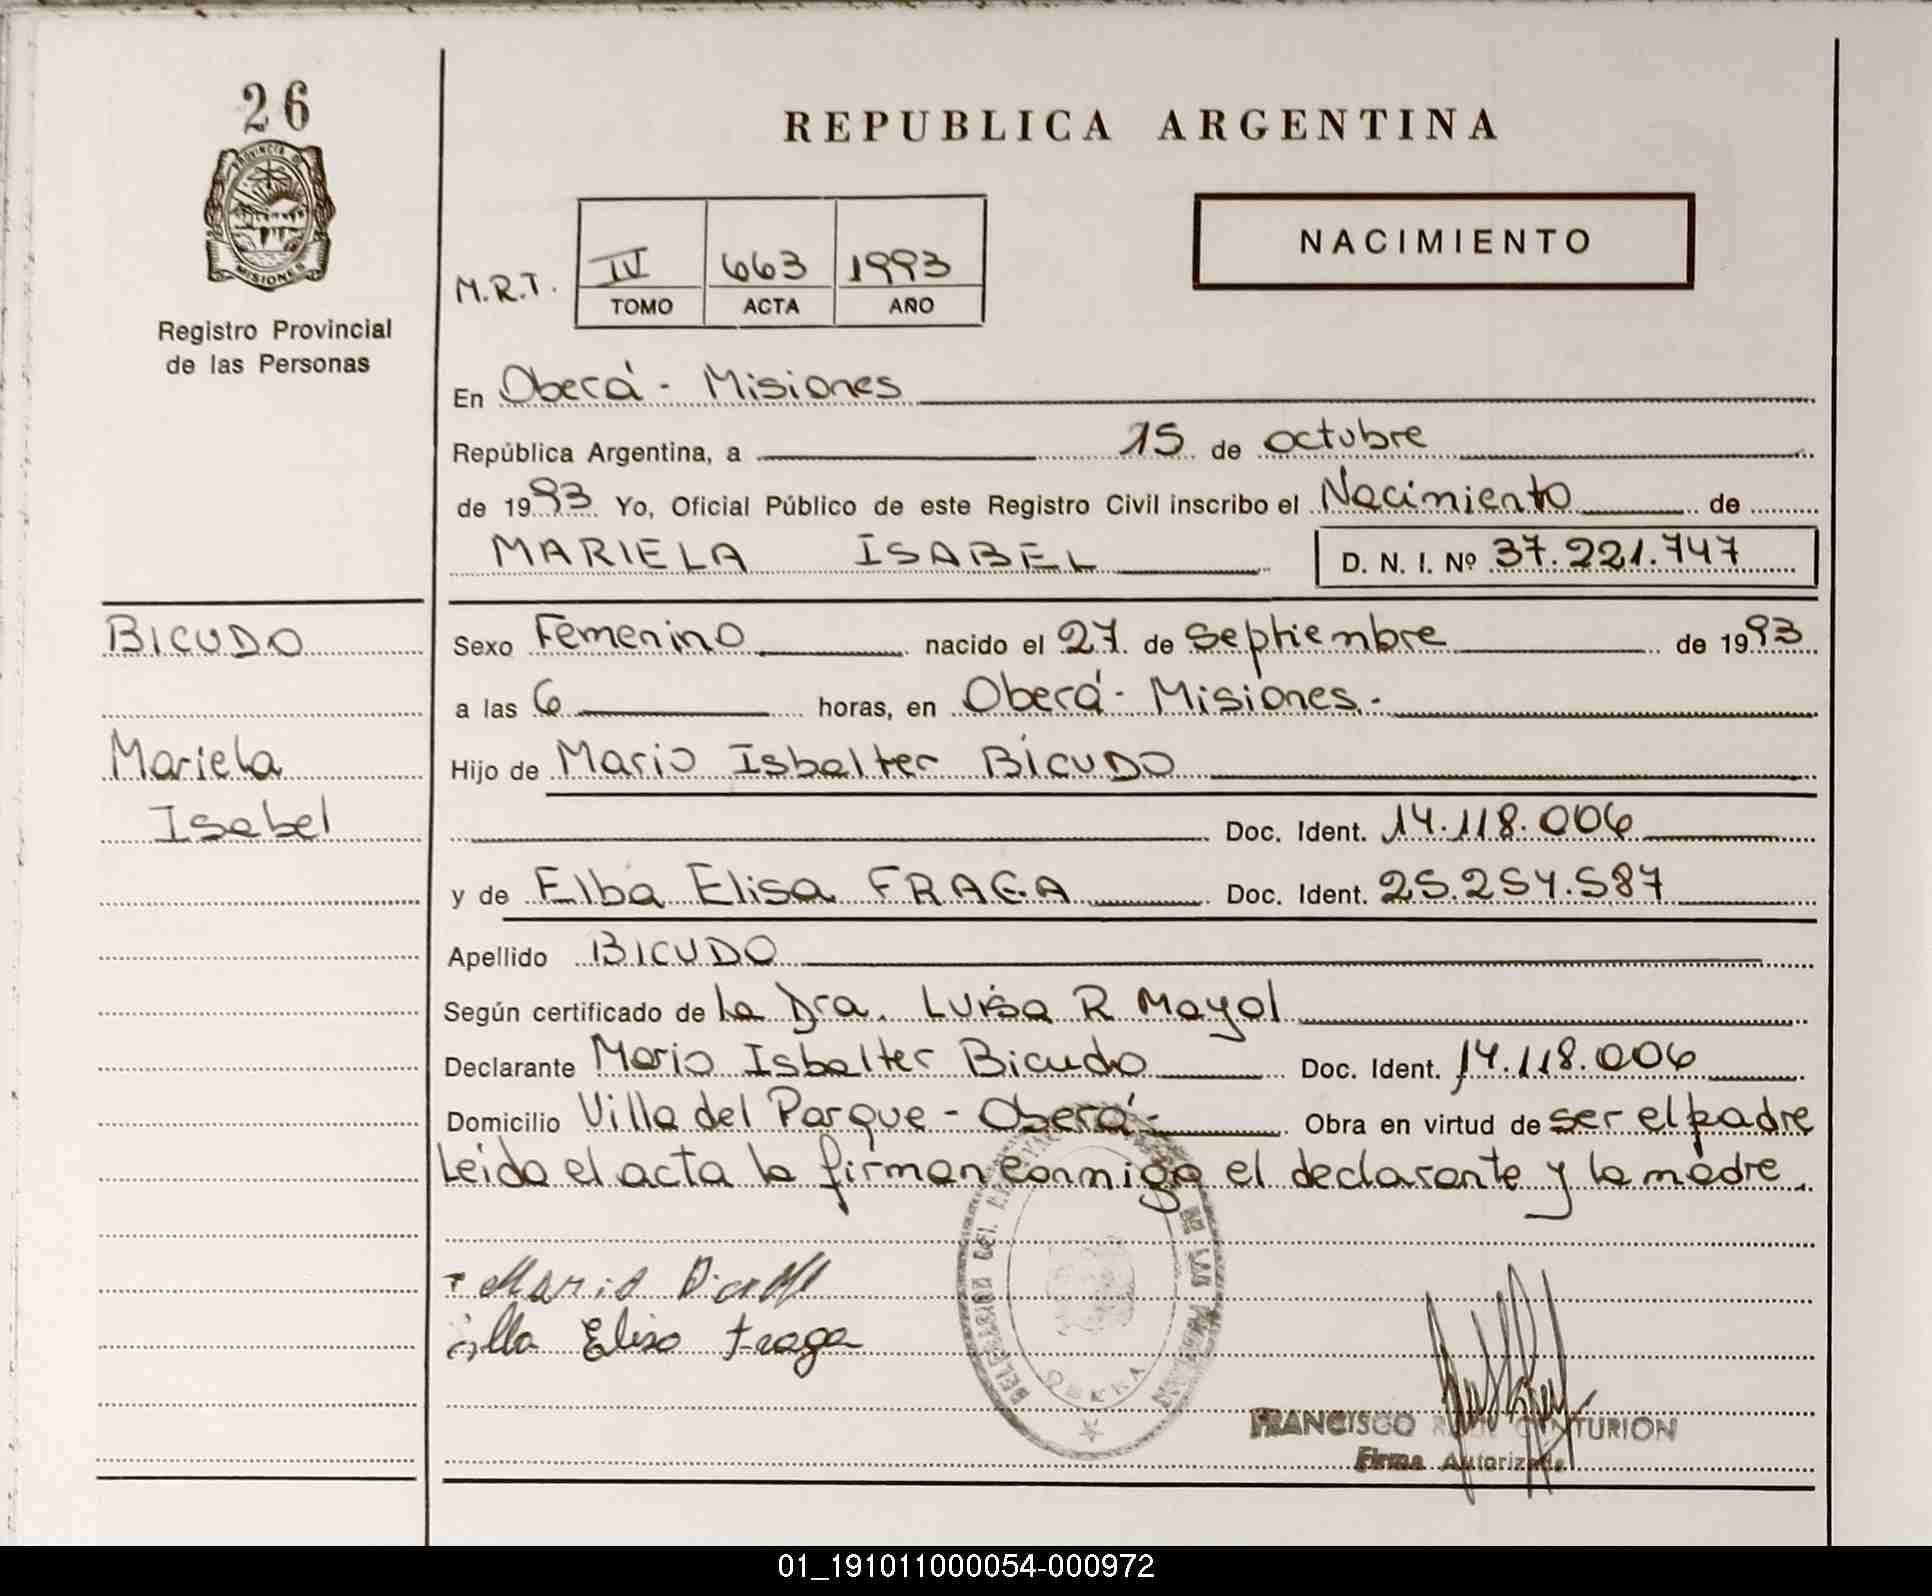 26
PROVINCIA DE
MISIONES
Registro Provincial
de las Personas
REPUBLICA ARGENTINA
NACIMIENTO
M.R.T.
IV 663 1993
TOMO ACTA AÑO
En Oberá - Misiones
República Argentina, a 15 de octubre
de 1993 Yo, Oficial Público de este Registro Civil inscribo el Nacimiento de
MARIELA ISABEL D. N. I. Nº 37.221.747
BICUDO
Mariela
Isabel
Sexo Femenino nacido el 27 de Septiembre de 1993
a las 6 horas, en Oberá - Misiones.-
Hijo de Mario Isbalter BICUDO
Doc. Ident. 14.118.006
y de Elba Elisa FRAGA Doc. Ident. 25.254.587
Apellido BICUDO
Según certificado de La Dra. Luisa R Mayol
Declarante Mario Isbalter Bicudo Doc. Ident. 14.118.006
Domicilio Villa del Parque - Oberá - Obra en virtud de ser el padre
Leida el acta la firman conmigo el declarante y la madre.
Mario
Elisa Fraga
OBERA
FRANCISCO CENTURION
Firma Autorizada
01_191011000054-000972